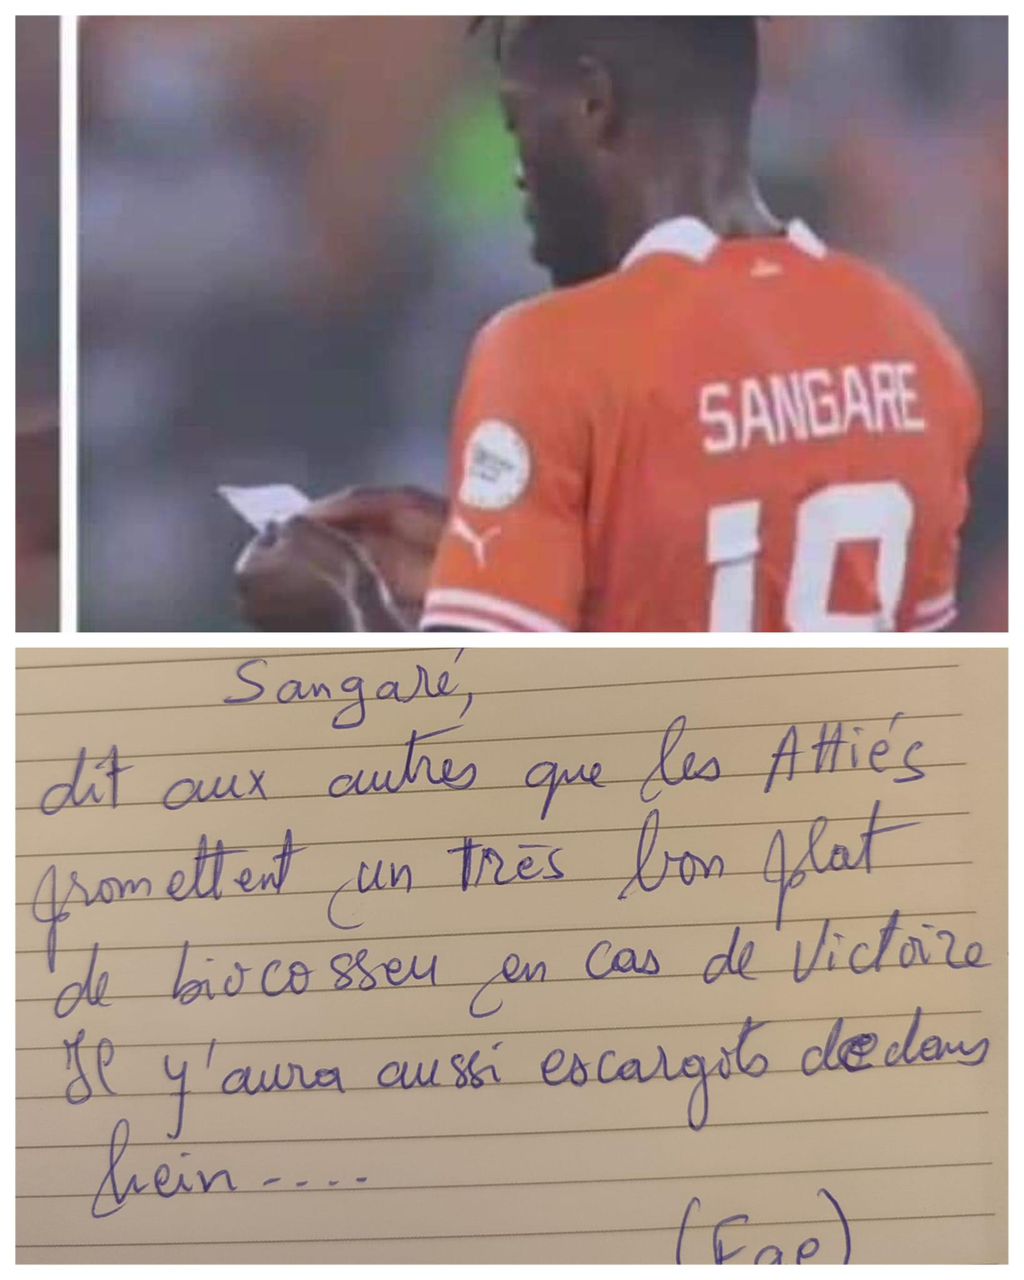 SANGARE
18
Sangaré,
dit aux autres que les Attiés
promettent un très bon plat
de biocosseu en cas de victoire
Il y'aura aussi escargots dedans
hein ----
(Fae)